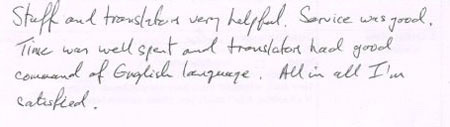 Staff and translators very helpful. Service was good.
Time was well spent and translators had good
command of English language. All in all I'm
satisfied.